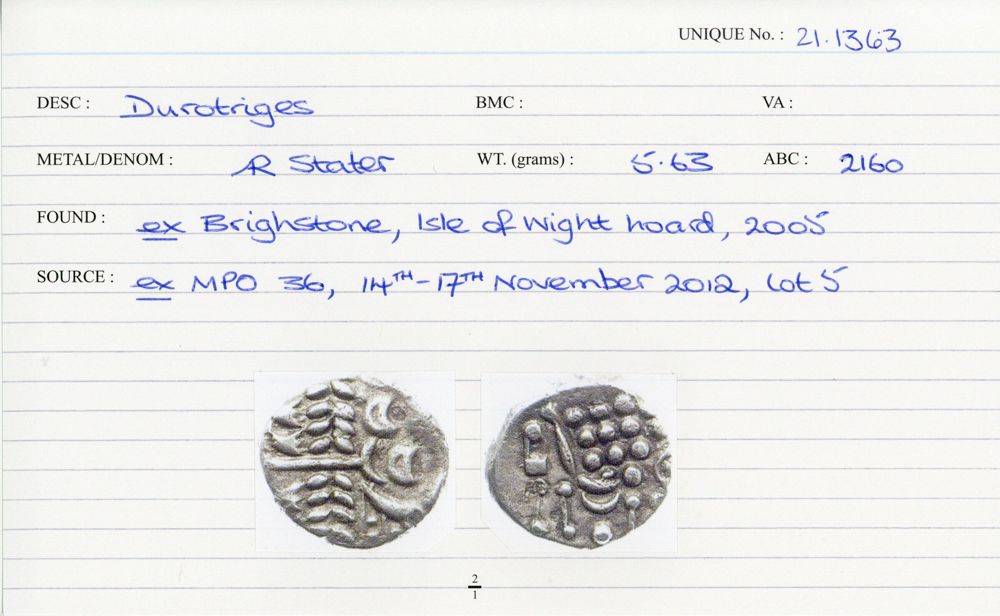 UNIQUE No. : 21.1363
DESC : Durotriges BMC : VA :
METAL/DENOM : AR Stater WT. (grams) : 5.63 ABC : 2160
FOUND : ex Brighstone, Isle of Wight hoard, 2005
SOURCE : ex MPO 36, 14TH-17TH November 2012, lot 5
2
1